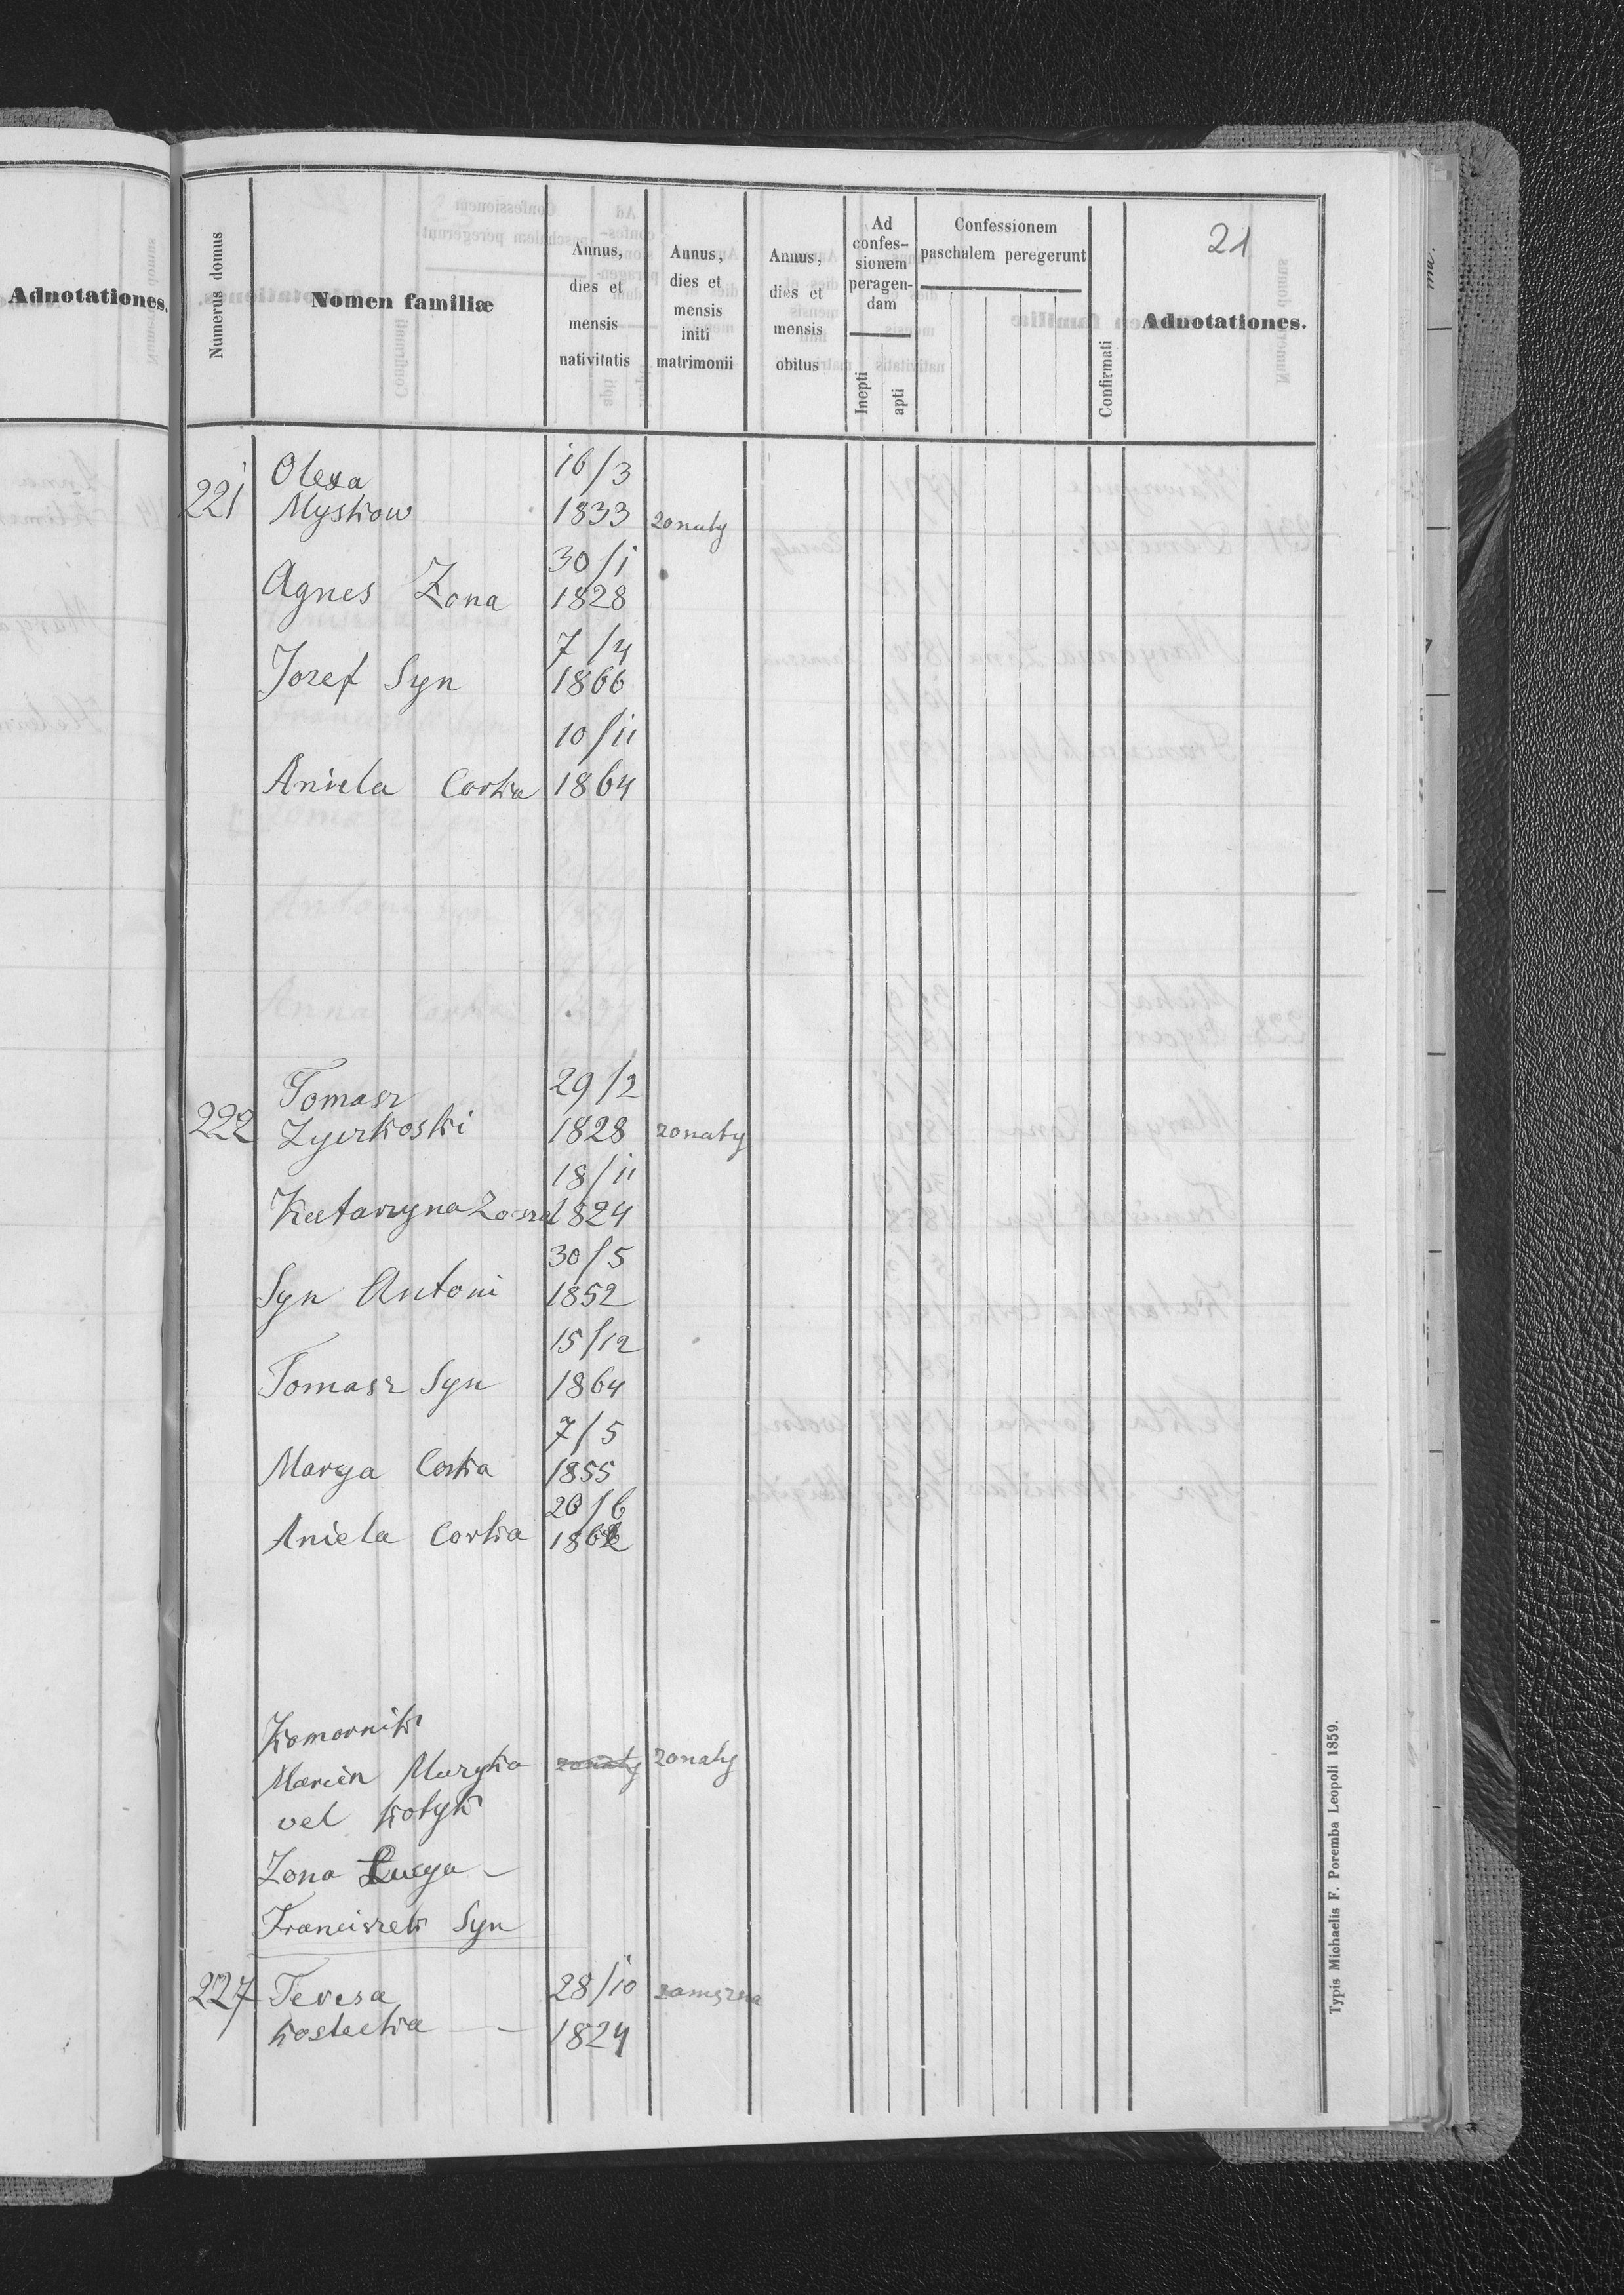 Adnotationes.
21
Numerus domus
Nomen familiæ
Annus,
dies et
mensis
nativitatis
Annus,
dies et
mensis
initi
matrimonii
Annus,
dies et
mensis
obitus
Ad
confes-
sionem
peragen-
dam
Inepti
apti
Confessionem
paschalem peregerunt
Confirmati
Adnotationes.
Olexa 16/3
221 Myskow 1833 zonaty
30/1
Agnes Zona 1828
7/4
Jozef Syn 1866
10/11
Aniela Corka 1864
Tomasz 29/2
222 Zyszkoski 1828 zonaty
18/11
Katarzyna Zona 1824
30/5
Syn Antoni 1852
15/12
Tomasz Syn 1864
7/5
Marya Corka 1855
20/6
Aniela Corka 1862
Komornik
Marcin Muzyka zonaty zonaty
vel Kotyk
Zona Lucya –
Franciszek Syn
227 Teresa 28/10 zamszna
Kostecka — — 1824
Typis Michaelis F. Poremba Leopoli 1859.